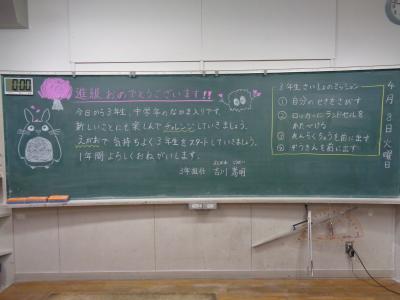 0:00
進級おめでとうございます!!
今日から3年生、中学年のなかま入りです。
新しいことにも楽しんでチャレンジしていきましょう。
えがおで気持ちよく3年生をスタートしていきましょう。
1年間よろしくおねがいします。
3年担任 古川
3年生さいしょのミッション
① 自分のせきをさがす
② ロッカーにランドセルを
かたづける
③ れんらくちょうを前に出す
④ ぞうきんを前に出す
4月8日火曜日